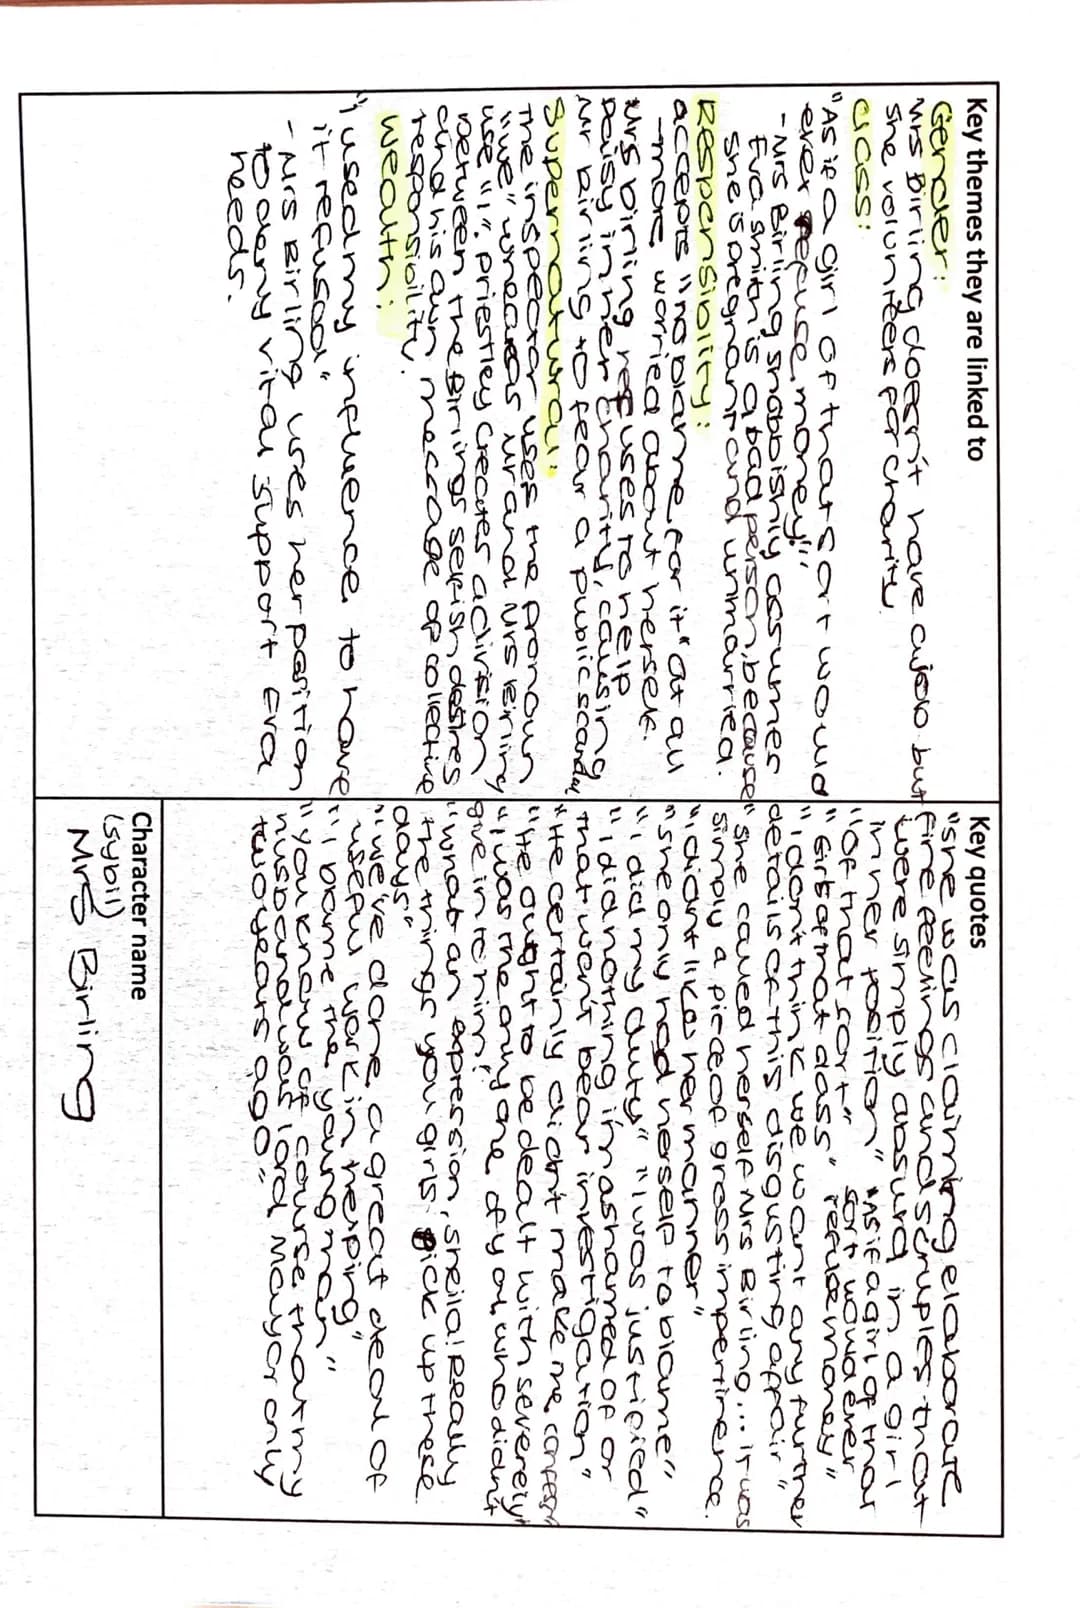 Key themes they are linked to
Gender:
Mrs Birling doesn't have a job but
she volunteers for charity
Class:
"As if a girl of that sort would
ever refuse money!"
- Mrs Birling snobbishly assumes
Eva Smith is a bad person, because
she is pregnant and unmarried.
Responsibility:
accepts "no blame for it" at all
- more worried about herself.
Mrs birling refuses to help
Daisy in her charity, causing
Mr birling to fear a public scandal
Supernatural:
The inspector uses the pronoun
"we" whereas Mr and Mrs Birling
use "I". Priestley creates a division
between the Birlings selfish desires
and his own message of collective
responsibility.
Wealth:
"I used my influence to have
it refused"
- Mrs Birling uses her position
to deny vital support Eva
needs.
Key quotes
"She was claiming elaborate
fine feelings and scruples that
were simply absurd in a girl
in her position" "As if a girl of that
"Of that sort" sort would ever
"Girls of that class" refuse money"
"I don't think we want any further
details of this disgusting affair"
"She called herself Mrs Birling... it was
simply a piece of gross impertinence.
"I didn't like her manner"
"She only had herself to blame"
"I did my duty" "I was justified"
"I did nothing I'm ashamed of or
that won't bear investigation"
"He certainly didn't make me confess
"He ought to be dealt with severely"
"I was the only one of you who didn't
give in to him"
"What an expression, Sheila! Really
the things you girls pick up these
days"
"We've done a great deal of
useful work in helping"
"I blame the young man"
"You know of course that my
husband was lord Mayor only
two years ago"
Character name
(Sybil)
Mrs Birling